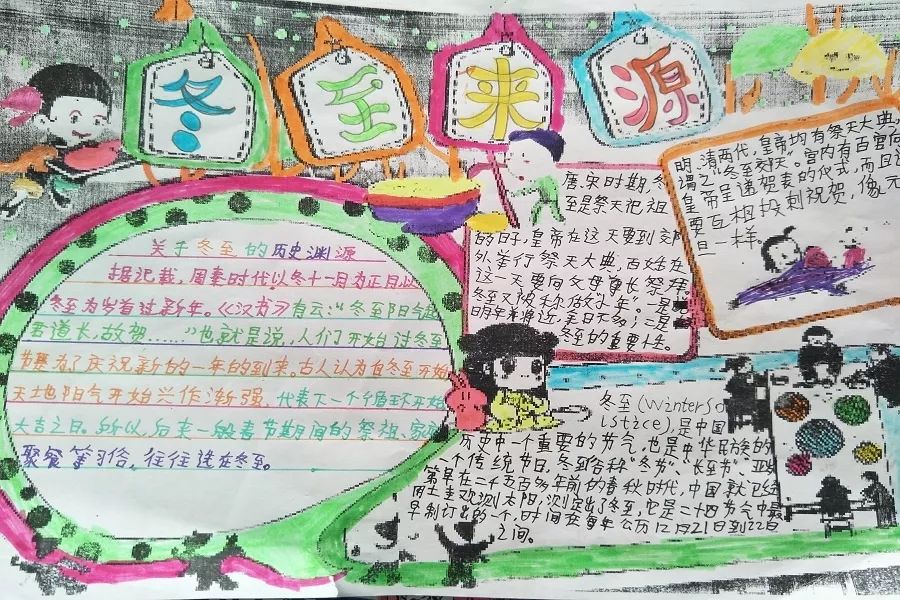 冬至来源
关于冬至的历史渊源
据记载，周秦时代以冬十一月为正月以
冬至为岁首过新年。《汉书》有云:"冬至阳气起
君道长,故贺……"也就是说,人们开始过冬至
节是为了庆祝新的一年的到来,古人认为自冬至开始
天地阳气开始兴作渐强,代表下一个循环开始
大吉之日。所以,后来一般春节期间的祭祖、家庭
聚餐等习俗,往往在冬至。
唐宋时期,冬
至是祭天祀祖
的日子,皇帝在这天要到郊
外举行祭天大典,百姓在
这一天要向父母尊长祭拜
冬至又被称做"小年",一是说
明年关将近,余日不多;二是
冬至的重要性。
明、清两代,皇帝均有祭天大典,
谓之"冬至郊天"。宫内有百官向
皇帝呈递贺表的仪式,而且
要互相投刺祝贺,像元
旦一样。
冬至(Winter So
lstice),是中国
历史中一个重要的节气,也是中华民族的
一个传统节日,冬至俗称"冬节"、"长至节"、"亚岁
第早在二千五百多年前的春秋时代,中国就已经
用土圭观测太阳,测定出了冬至,它是二十四节气中最
早制订出的一个,时间在每年公历12月21日到22日
之间。